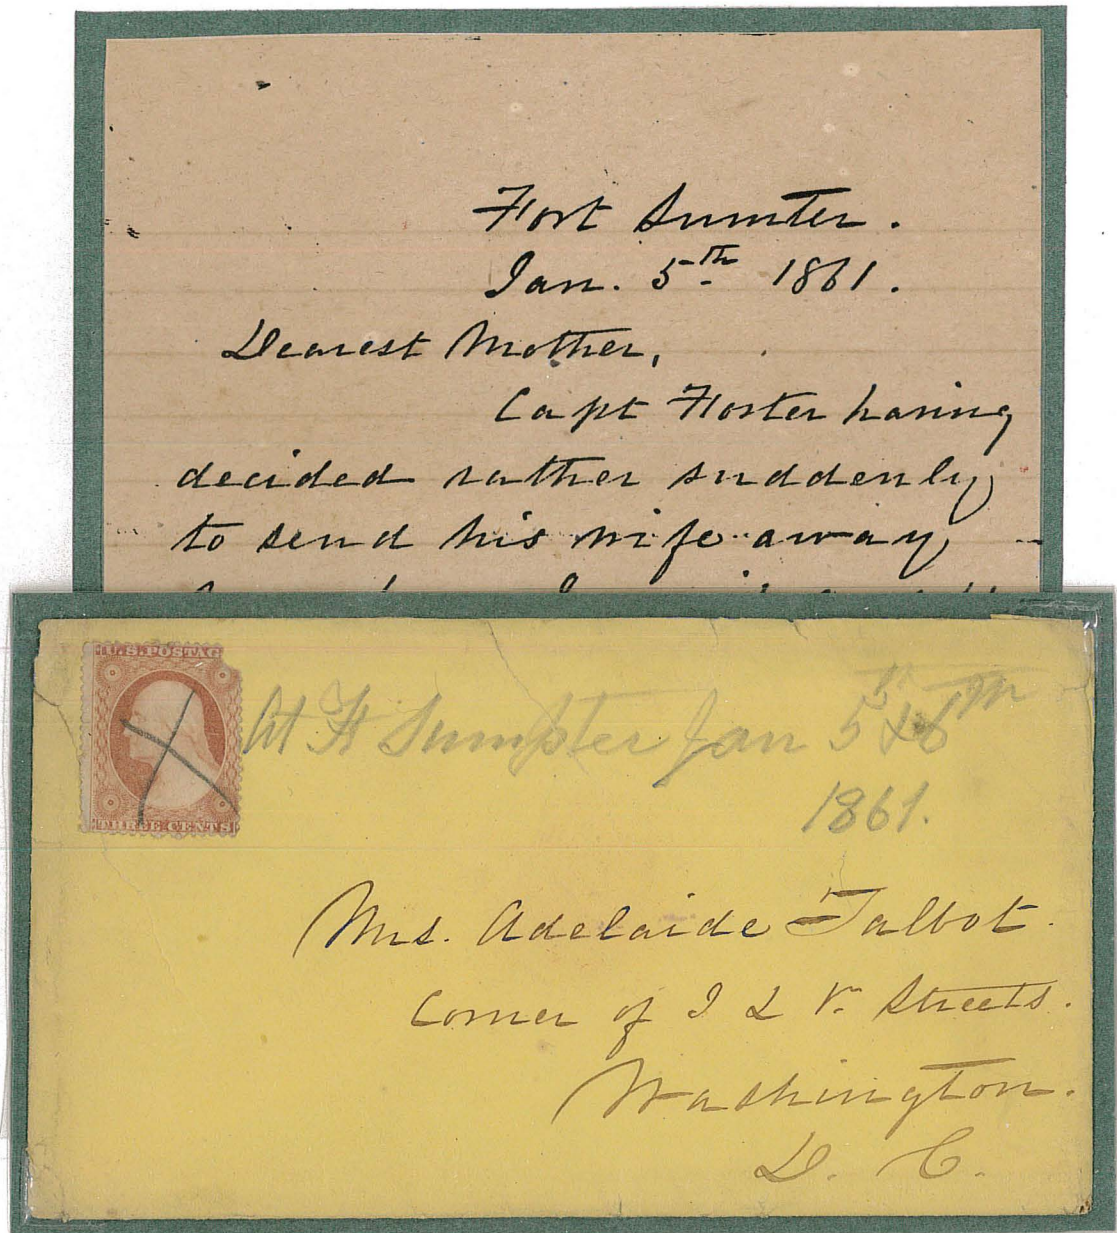 Fort Sumter.
Jan. 5th 1861.
Dearest Mother,
Capt Foster having
decided rather suddenly
to send his wife away
U.S. POSTAG
THREE CENTS
At Ft Sumpter Jan 5 & 6th
1861.
Mrs. Adelaide Talbot.
Corner of I &
Streets.
Washington.
D. C.